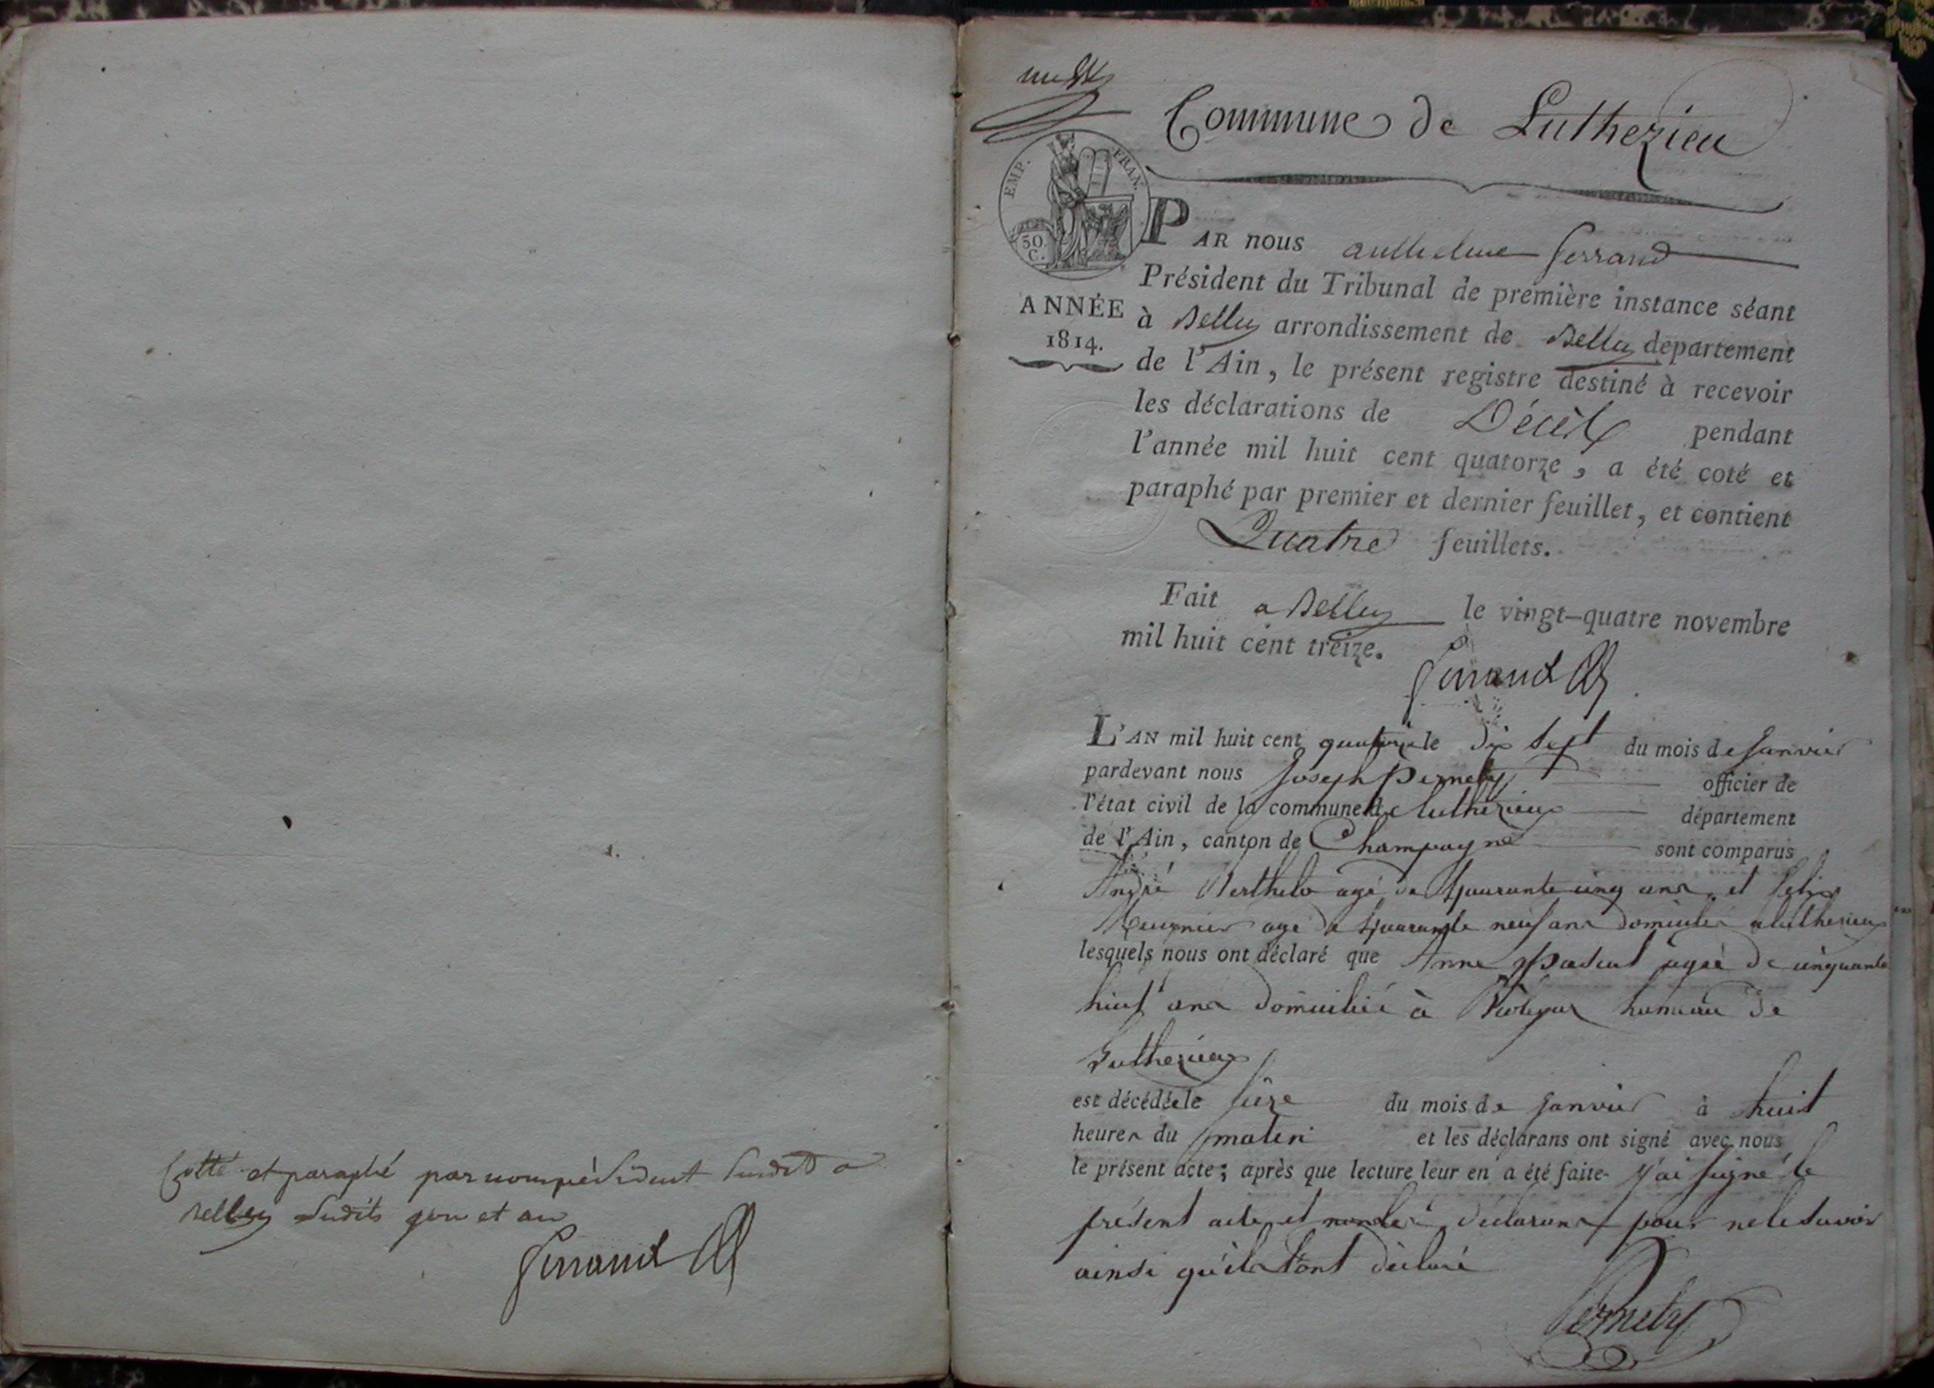 Cotté et paraphé par nous président susdit a
Belley susdits jour et an
Ferrand
Commune de Luthezieu
EMP. FRAN.
50. C.
ANNÉE
1814.
PAR nous anthelme ferrand
Président du Tribunal de première instance séant
à Belley arrondissement de Belley département
de l'Ain, le présent registre destiné à recevoir
les déclarations de Décès pendant
l'année mil huit cent quatorze, a été coté et
paraphé par premier et dernier feuillet, et contient
Quatre feuillets.
Fait a Belley le vingt-quatre novembre
mil huit cent treize.
Ferrand
L'AN mil huit cent quatorze le dix sept du mois de Janvier
pardevant nous Joseph Pernety officier de
l'état civil de la commune de luthezieu département
de l'Ain, canton de Champagne sont comparus
André Berthelo agé de quarante cinq ans et
agé de quarante neuf ans domicilié a luthezieu
lesquels nous ont déclaré que Anne agée de cinquante
huit ans domiciliée à hameau de
Luthezieu
est décédée le du mois de Janvier à huit
heures du matin et les déclarans ont signé avec nous
le présent acte; après que lecture leur en a été faite j'ai signé le
présent acte et non les déclarans pour ne le savoir
ainsi qu'ils l'ont déclaré
Pernety